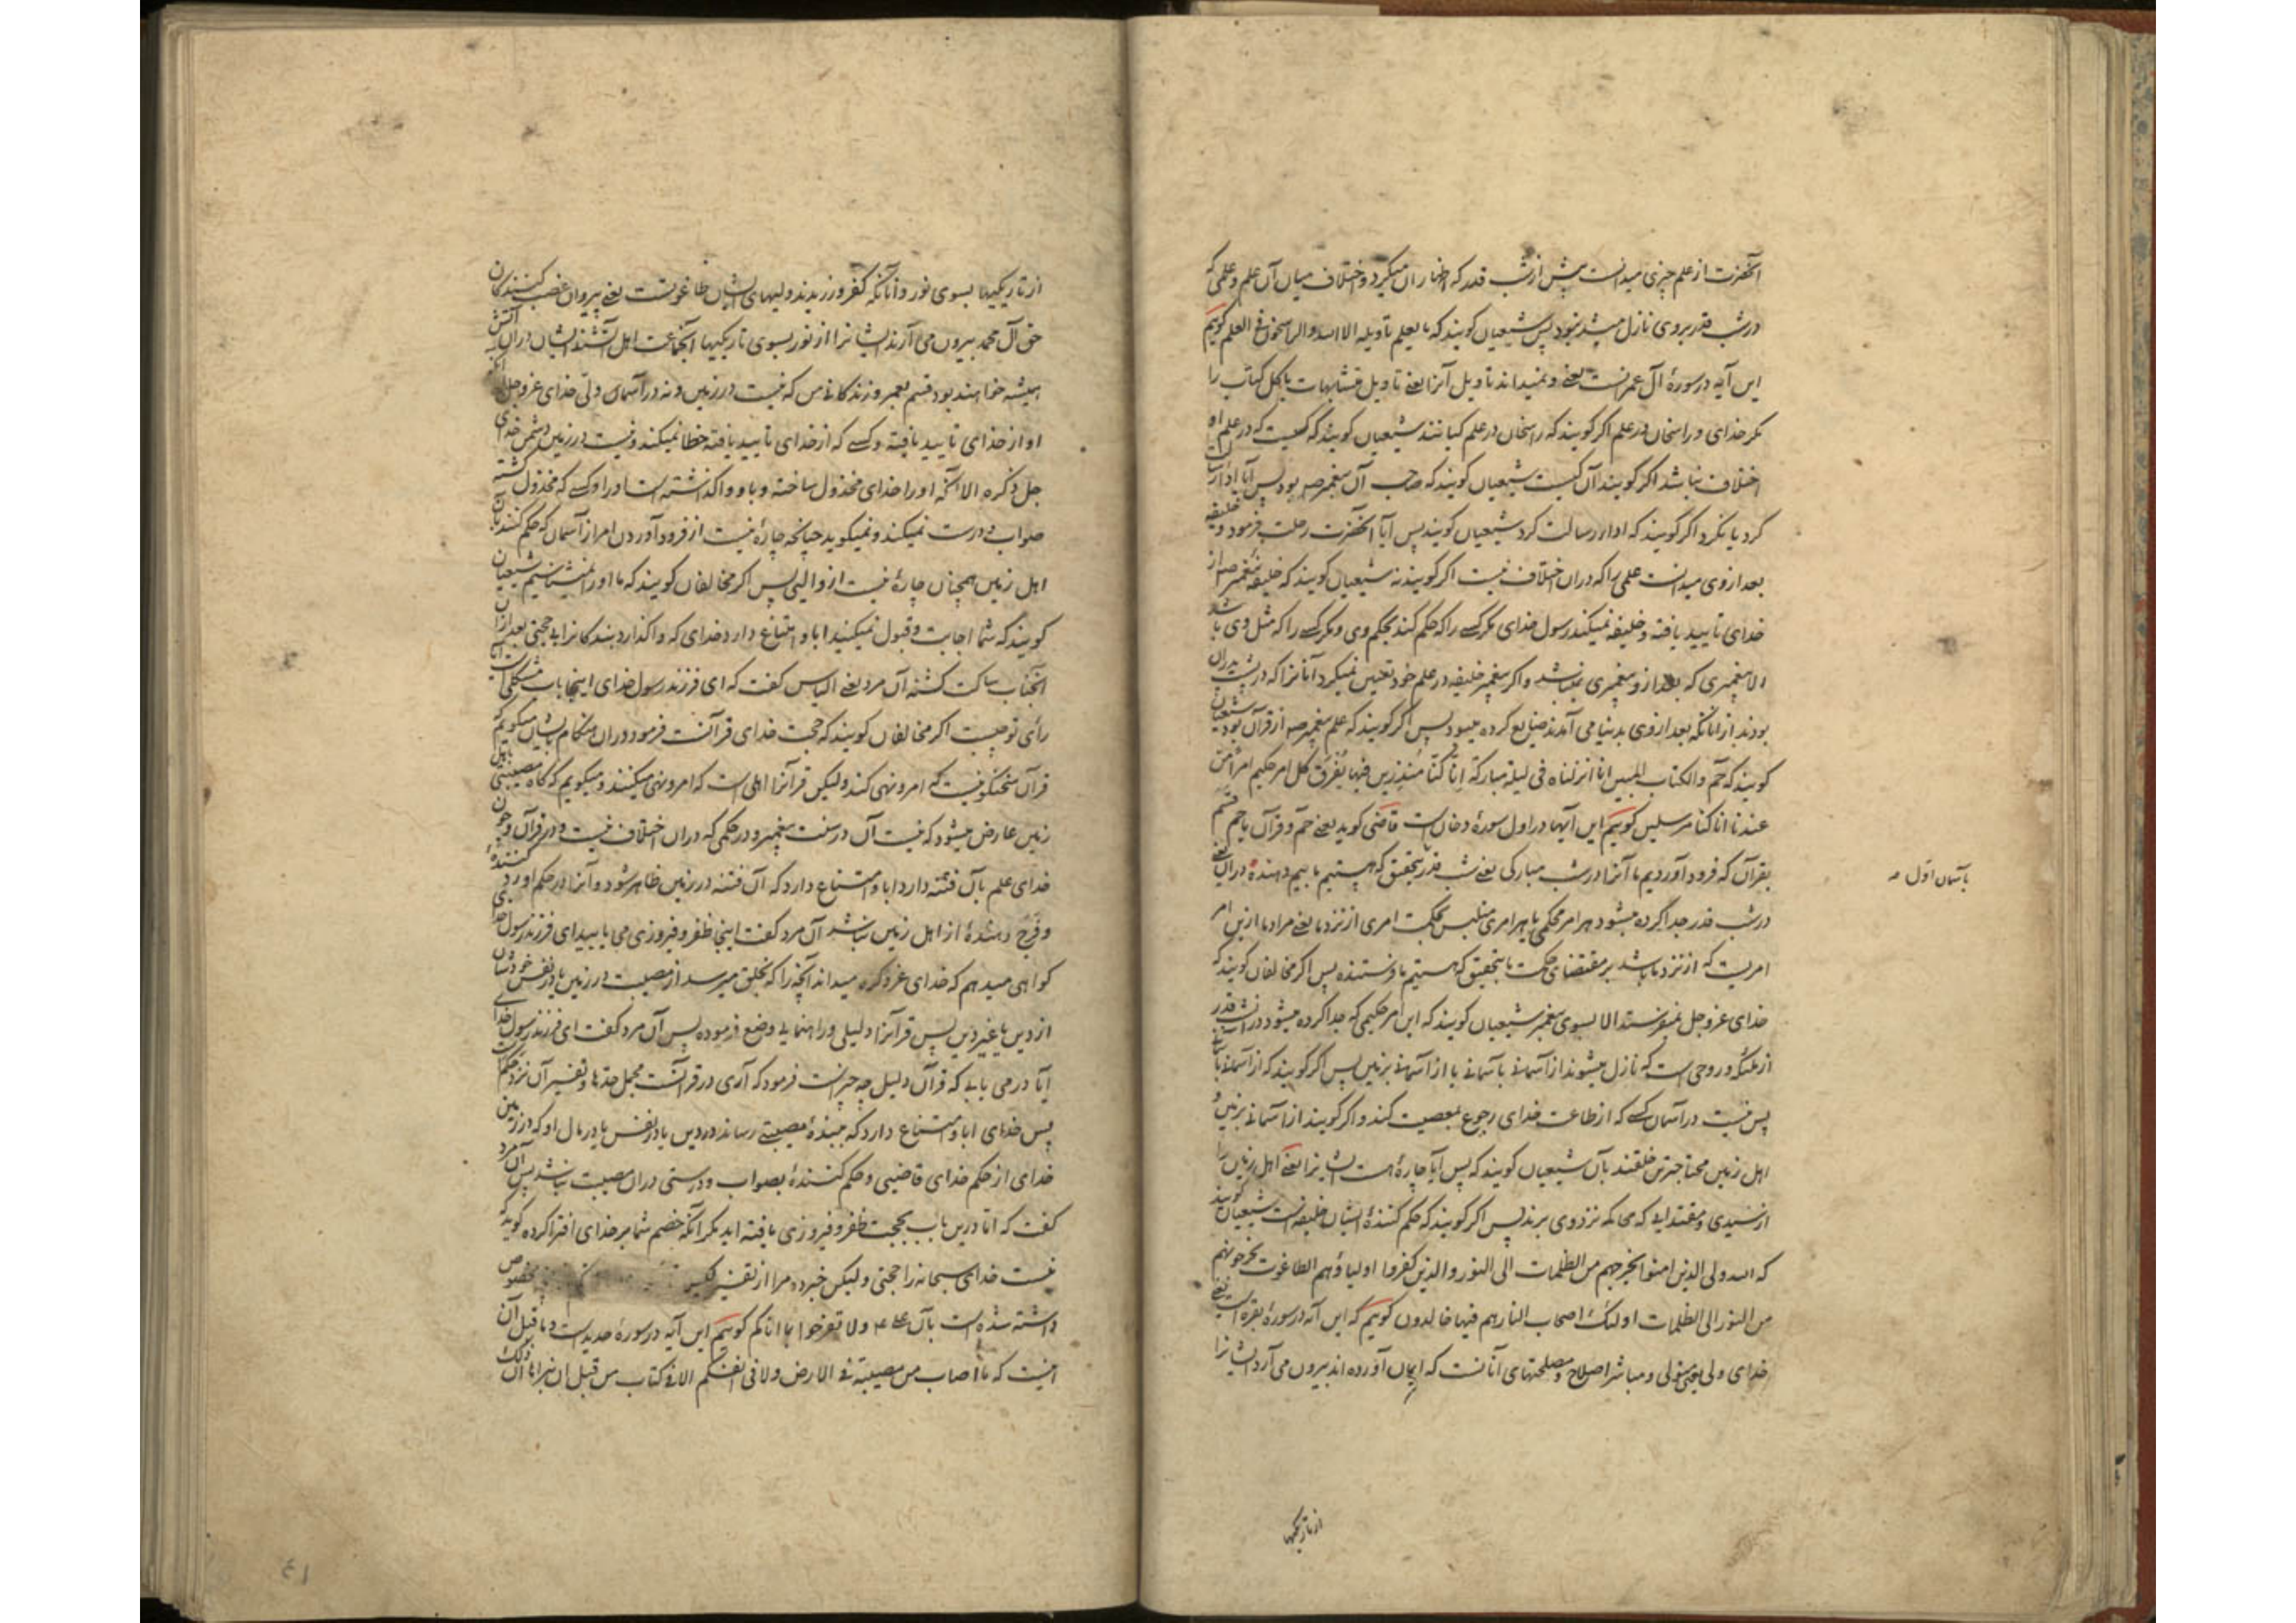 آنحضرت از علم چیزی میدانست پیش از شب قدر که اظهار آن میکرد و اختلاف میان آن علم و علمی که
در شب قدر بر وی نازل میشد نبود پس شیعیان کویند که ما یعلم تاویله الا الله والراسخون فی العلم کویم
این آیه در سورهٔ آل عمرانست یعنی و نمیداند تاویل آنرا یعنی تاویل متشابهات یا کل کتاب را
مکر خدای و راسخان در علم اکر کویند که راسخان در علم کیانند شیعیان کویند که کسیست که در علم او
اختلاف نباشد اکر کویند آن کیست شیعیان کویند که صاحب آن پیغمبر صم بود پس آیا ادا رسالت
کرد یا نکرد اکر کویند که ادا رسالت کرد شیعیان کویند پس آیا آنحضرت رحلت فرمود و خلیفه
بعد از وی میدانست علمی را که در ان اختلاف نیست اکر کویند نه شیعیان کویند که خلیفه پیغمبر صم از
خدای تایید یافته و خلیفه نمیکند رسول خدای مکر کسی را که حکم کند بحکم وی و مکر کسی را که مثل وی باشد
الا پیغمبری که بعد از و پیغمبری نمیباشد و اکر پیغمبر خلیفه در علم خود تعیین نمیکرد آنانرا که در پشت پدران
بودند از آنانکه بعد از وی بدنیا می آمدند ضایع کرده میبود پس اکر کویند که علم پیغمبر صم از قرآن بود شیعیان
کویند که حم والکتاب المبین انا انزلناه فی لیلة مبارکة انا کنا منذرین فیها یفرق کل امر حکیم امرا من
عندنا انا کنا مرسلین کویم این آیها در اول سورهٔ دخان است قاضی کوید یعنی حم و قرآن یا حم قسم
بقرآن که فرود آوردیم ما آنرا در شب مبارکی یعنی شب قدر بتحقیق که هستیم ما بیم دهنده در ان یعنی
باسمان اول صه
در شب قدر جدا کرده میشود هر امر محکمی یا هر امری متلبس بحکمت امری از نزد ما یعنی مراد ما ازین امر
امریست که از نزد ما باشد بر مقتضای حکمت ما بتحقیق که هستیم ما فرستنده پس اکر مخالفان کویند که
خدای عزوجل نمیفرستد الا بسوی پیغمبر شیعیان کویند که این امر حکیمی که جدا کرده میشود در ان شب قدر
از ملئکه و روحی است که نازل میشوند از آسمانی بآسمانی یا از آسمانی بزمین پس اکر کویند که از آسمانی بآسمانی
پس نیست در آسمان کسی که از طاعت خدای رجوع بمعصیت کند و اکر کویند از آسمانی بزمین و
اهل زمین محتاجترین خلقند بآن شیعیان کویند که پس آیا چارهٔ هست ایشانرا یعنی اهل زمین را
از سیدی و مقتدایی که محاکمه نزد وی برند پس اکر کویند که حکم کنندهٔ ایشان خلیفه است شیعیان کویند
که الله ولی الذین امنوا یخرجهم من الظلمات الی النور والذین کفروا اولیاؤهم الطاغوت یخرجونهم
من النور الی الظلمات اولئک اصحاب النار هم فیها خالدون کویم که این آیه در سورهٔ بقره است یعنی
خدای ولی یعنی متولی و مباشر اصلاح و مصلحتهای آنانست که ایمان آورده اند بیرون می آرد ایشانرا
از تاریکیها
از تاریکیها بسوی نور و آنانکه کفر ورزیدند ولیهای ایشان طاغوتست یعنی پیروان غصب کنندکان
حق آل محمد بیرون می آرند ایشانرا از نور بسوی تاریکیها آنجماعت اهل آتشند ایشان در ان آتش
همیشه خواهند بود قسم بعمر و زندکانی من که نیست در زمین و نه در آسمان ولی خدای عزوجل الا آنکه
او از خدای تایید یافته و کسی که از خدای تایید یافته خطا نمیکند و نیست در زمین دشمن خدای
جل ذکره الا آنکه او را خدای مخذول ساخته و باو واکذاشته است او را و کسی که مخذول کشته
صواب و درست نمیکند و نمیکوید چنانچه چارهٔ نیست از فرود آوردن امر از آسمان که حکم کنند بآن
اهل زمین همچنان چارهٔ نیست از والیی پس اکر مخالفان کویند که ما او را نمیشناسیم شیعیان
کویند که شما اجابت و قبول نمیکنید ابا و امتناع دارد خدای که واکذارد بندکانرا بی حجتی بعد از ان
آنجناب ساکت کشته آن مرد یعنی الیاس کفت که ای فرزند رسول خدای اینجا باب مشکلی است آیا
رأی تو چیست اکر مخالفان کویند که حجت خدای قرآنست فرمود در ان هنکام بایشان میکویم که
قرآن سخنکو نیست که امر و نهی کند ولیکن قرآنرا اهلی است که امر و نهی میکنند و میکویم که کاه مصیبتی باهل
زمین عارض میشود که نیست آن در سنت پیغمبر و در حکمی که در ان اختلاف نیست و در قرآن و چون
خدای علم بآن فتنه دارد ابا و امتناع دارد که آن فتنه در زمین ظاهر شود و آنرا در حکم او رد کنندهٔ
و فرج دهندهٔ از اهل زمین نباشد آن مرد کفت اینجا ظفر و فیروزی می یابید ای فرزند رسول خدای
کواهی میدهم که خدای عز ذکره میداند آنچه را که بخلق میرسد از مصیبت در زمین یا در نفس خودشان
از دین یا غیر دین پس قرآنرا دلیلی و راهنمایی وضع فرموده پس آن مرد کفت ای فرزند رسول خدای
آیا در می یابی که قرآن دلیل چه چیزست فرمود که آری در قرآنست مجمل حدها و تفسیر آن نزد حکم است
پس خدای ابا و امتناع دارد که ببندهٔ مصیبتی رساند در دین یا در نفس یا در مال او که در زمین
خدای از حکم خدای قاضیی و حکم کنندهٔ بصواب و درستی در ان مصیبت نباشد پس آن مرد
کفت که اما درین باب بحجت ظفر و فیروزی یافته اید مکر آنکه خصم شما بر خدای افترا کرده کوید که
نیست خدای سبحانه را حجتی ولیکن خبر ده مرا از تفسیر مخصوص
داشته شده است بآن علی ع م ولا تفرحوا بما اتاکم کویم این آیه در سورهٔ حدید است و ما قبل آن
اینست که ما اصاب من مصیبة فی الارض ولا فی انفسکم الا فی کتاب من قبل ان نبراها ان ذلک